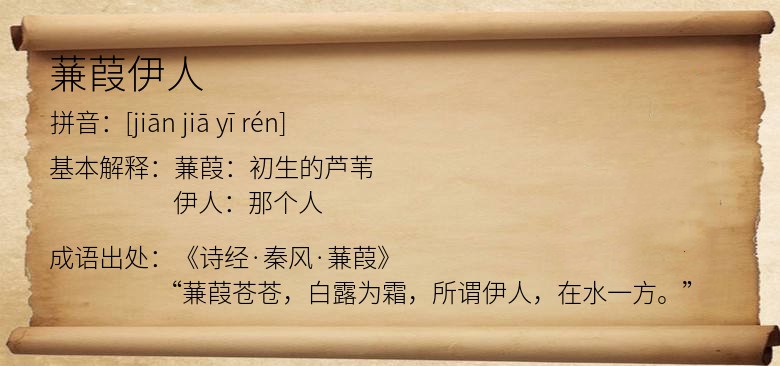 蒹葭伊人
拼音：[jiān jiā yī rén]
基本解释：蒹葭：初生的芦苇
伊人：那个人
成语出处：《诗经·秦风·蒹葭》
“蒹葭苍苍，白露为霜，所谓伊人，在水一方。”